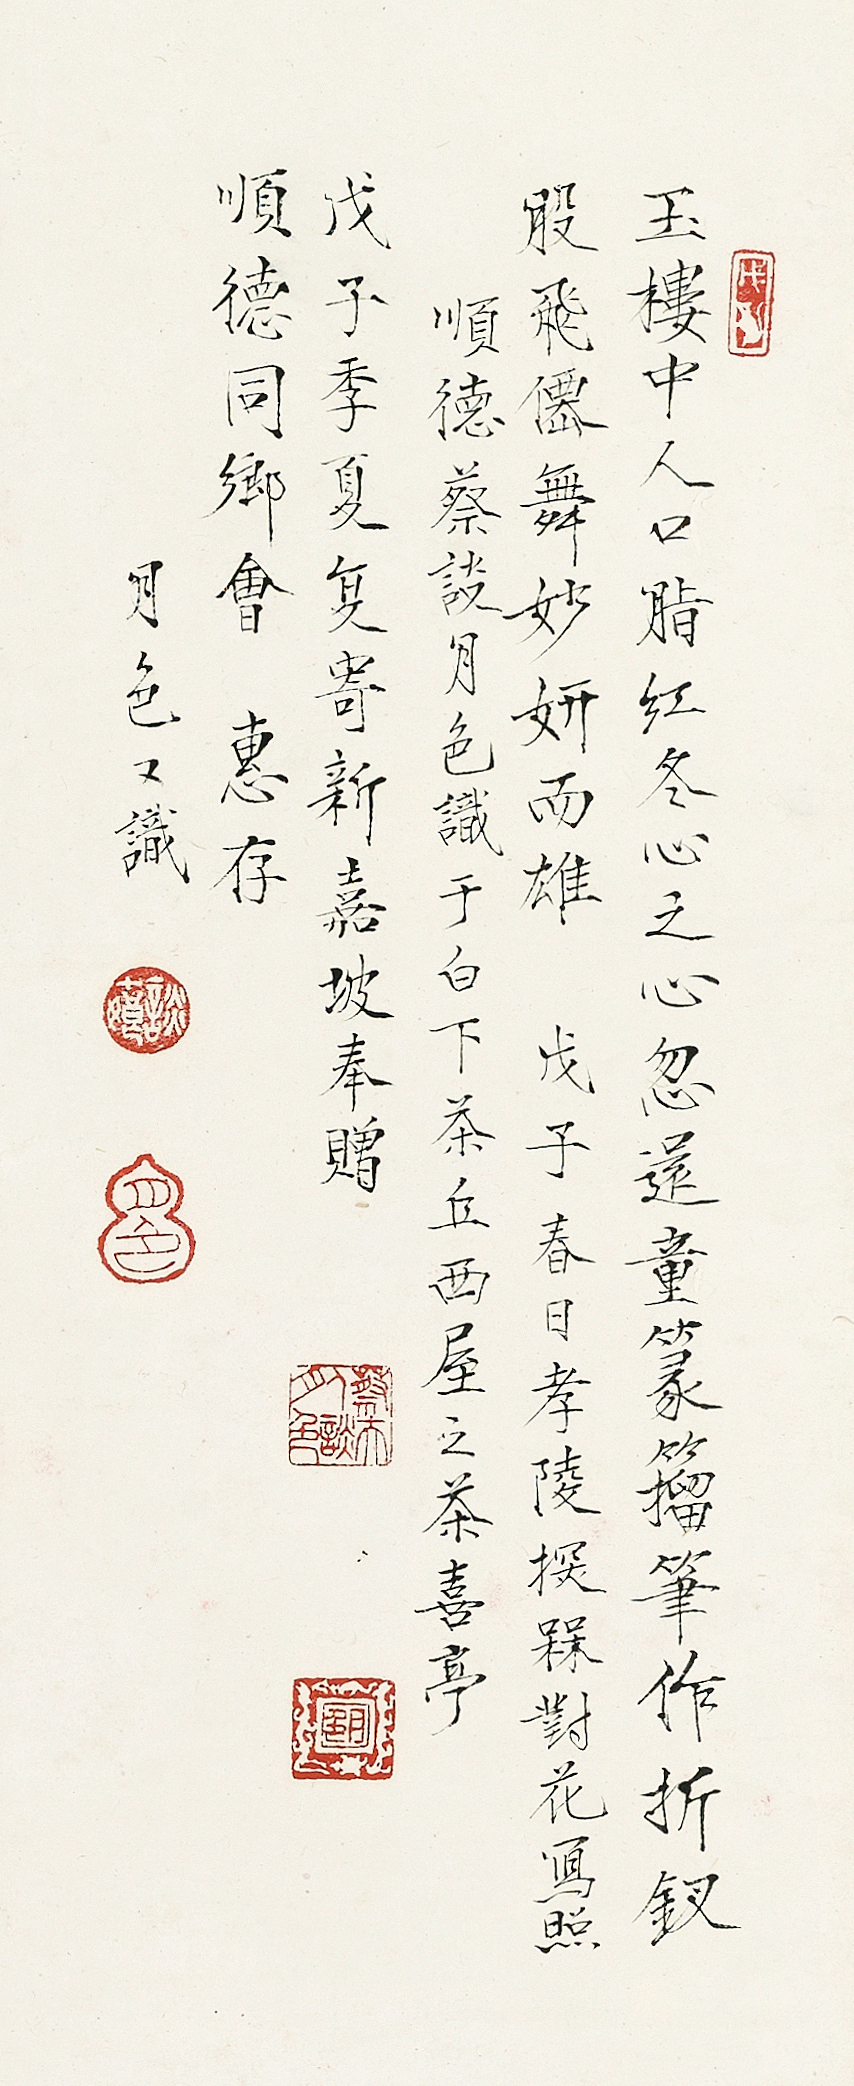 戊子
玉樓中人口脂紅冬心之心忽還童篆籀筆作折釵
股飛僊舞妙妍而雄 戊子春日孝陵探槑對花寫照
順德蔡談月色識于白下茶丘西屋之茶喜亭
戊子季夏复寄新嘉坡奉贈
順德同鄉會 惠存
月色又識
月色